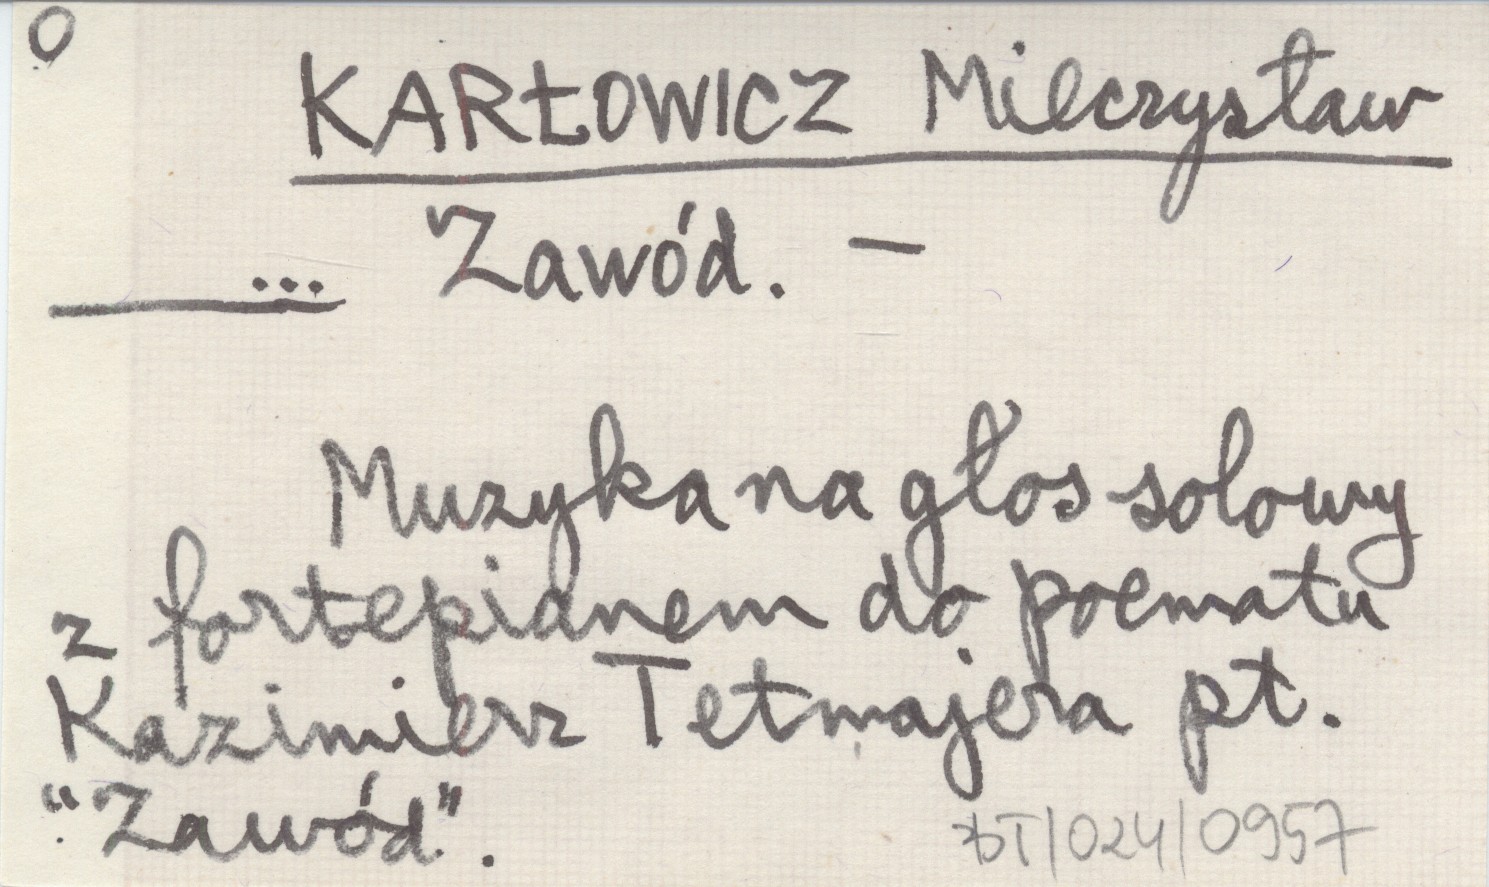 O
KARŁOWICZ Mieczysław
... Zawód. —
Muzyka na głos solowy
z fortepianem do poematu
Kazimierz Tetmajera pt.
"Zawód".
/024/0957